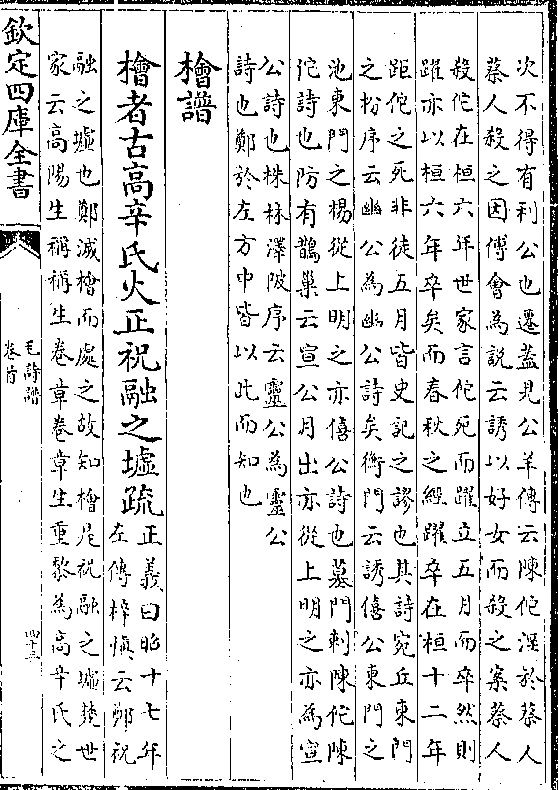 次不得有利公也遷蓋見公羊傳云陳佗淫於蔡人
蔡人殺之因傅會為説云誘以好女而殺之案蔡人
殺佗在桓六年世家言佗死而躍立五月而卒然則
躍亦以桓六年卒矣而春秋之經躍卒在桓十二年
距佗之死非徒五月皆史記之謬也其詩宛丘東門
之枌序云幽公為幽公詩矣衡門云誘僖公東門之
池東門之楊從上明之亦僖公詩也墓門刺陳佗陳
佗詩也防有鵲巢云宣公月出亦從上明之亦為宣
公詩也株林澤陂序云靈公為靈公
詩也鄭於左方中皆以此而知也
檜譜
檜者古高辛氏火正祝融之墟疏
正義曰昭十七年
左傳梓慎云鄭祝
融之墟也鄭滅檜而處之故知檜是祝融之墟楚世
家云高陽生稱稱生卷章卷章生重黎為高辛氏之
欽定四庫全書
毛詩譜
卷首
四十三